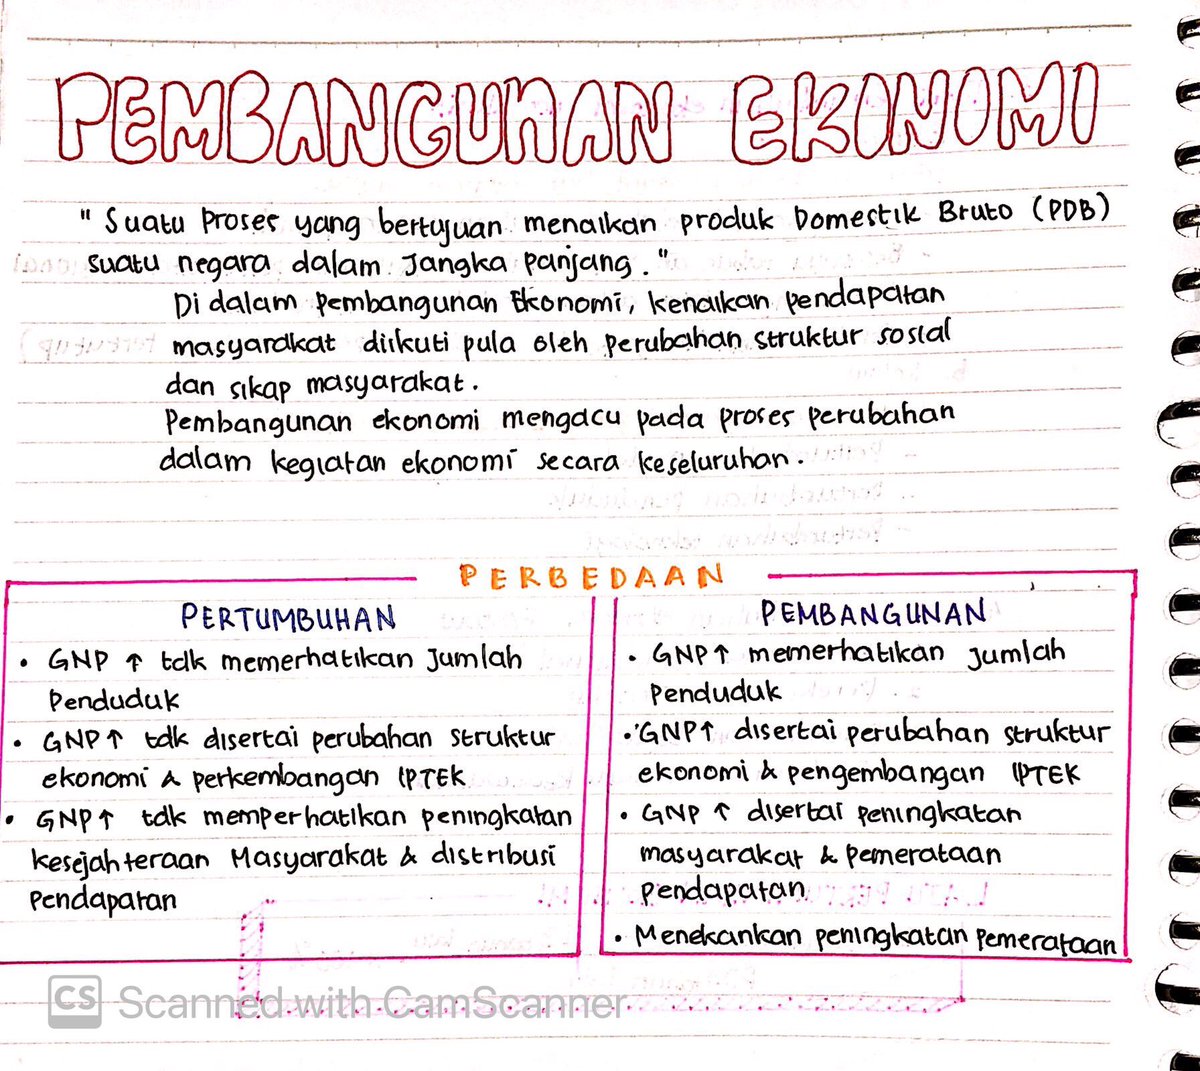 PEMBANGUNAN EKONOMI
"Suatu Proses yang bertujuan menaikan produk Domestik Bruto (PDB)
suatu negara dalam Jangka Panjang."
Di dalam pembangunan Ekonomi, kenaikan pendapatan
masyarakat diikuti pula oleh perubahan struktur sosial
dan sikap masyarakat.
Pembangunan ekonomi mengacu pada proses perubahan
dalam kegiatan ekonomi secara keseluruhan.
PERBEDAAN
PERTUMBUHAN
• GNP ↑ tdk memerhatikan Jumlah
Penduduk
• GNP ↑ tdk disertai perubahan struktur
ekonomi & perkembangan IPTEK
• GNP ↑ tdk memperhatikan peningkatan
Kesejahteraan Masyarakat & distribusi
Pendapatan
PEMBANGUNAN
• GNP ↑ memerhatikan Jumlah
Penduduk
• GNP ↑ disertai perubahan struktur
ekonomi & pengembangan IPTEK
• GNP ↑ disertai peningkatan
masyarakat & pemerataan
pendapatan
• Menekankan peningkatan pemerataan
CS Scanned with CamScanner